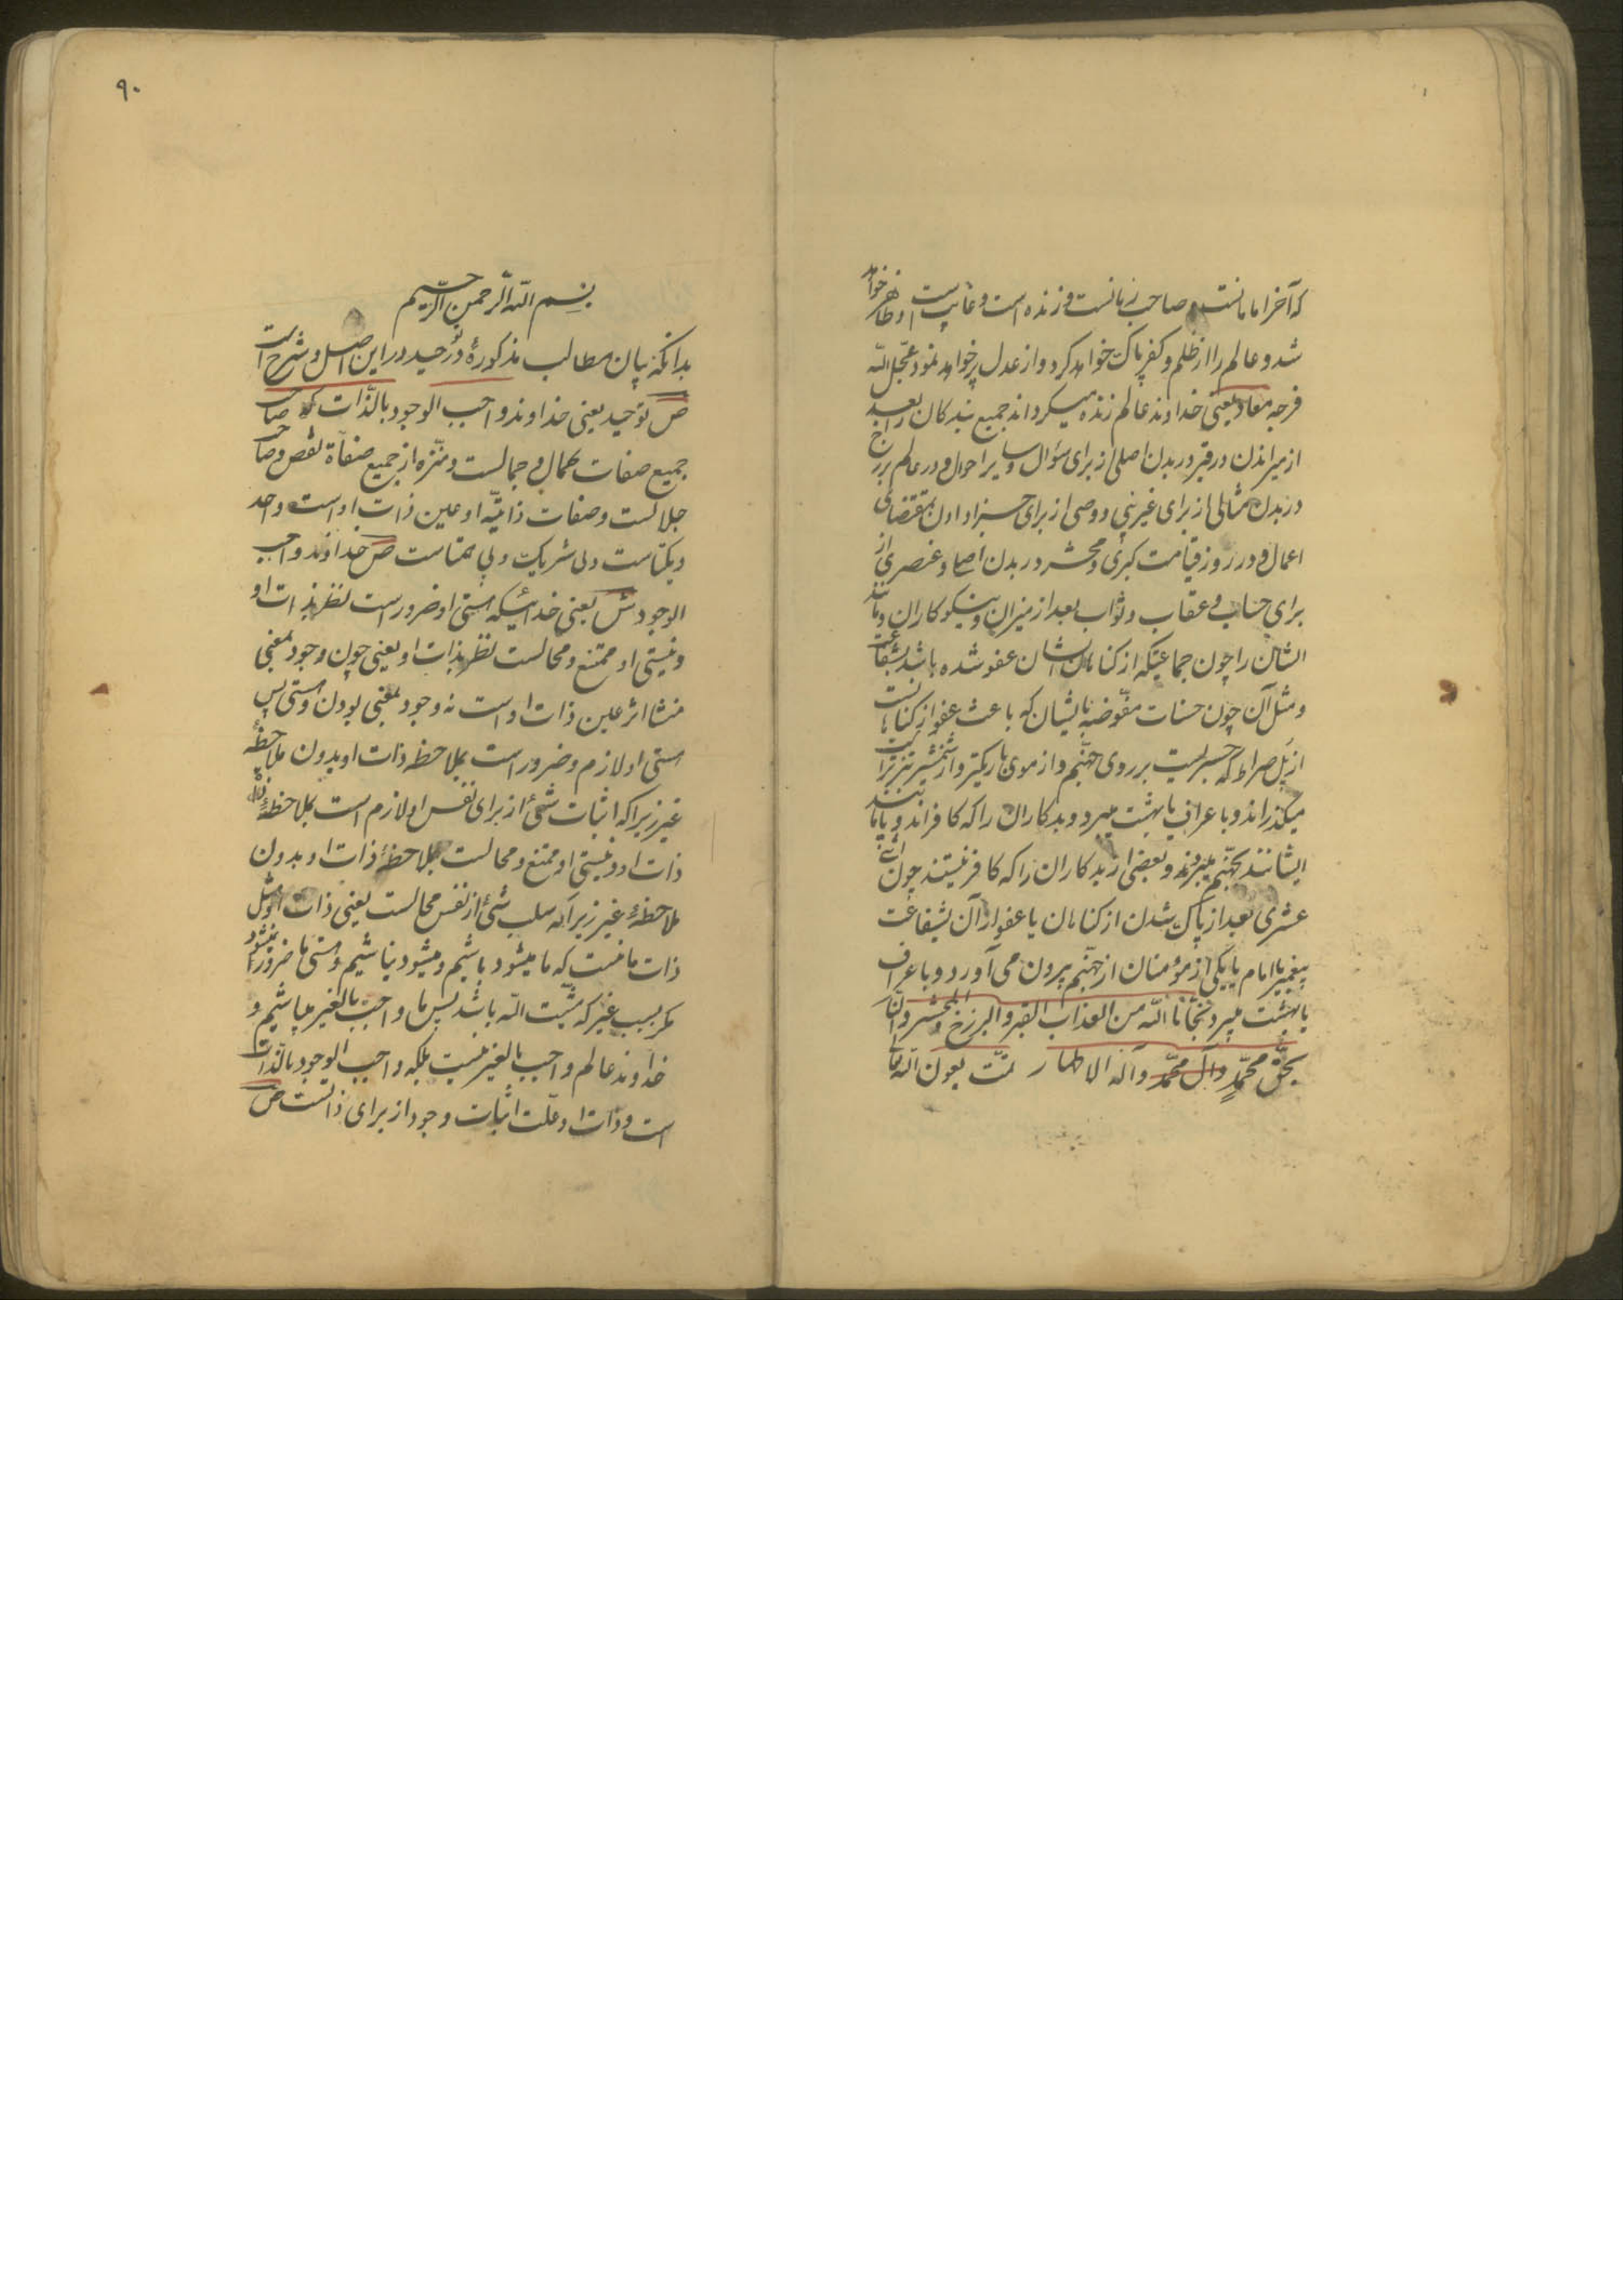 که آخر امامانست و صاحب زمانست و زنده است و غایب است و ظاهر خواهد
شد و عالم را از ظلم و کفر پاک خواهد کرد و از عدل پر خواهد نمود عجّل الله
فرجه معاد یعنی خداوند عالم زنده میکرداند جمیع بندکان را بعد
از میراندن در قبر در بدن اصلی از برای سؤال و سایر احوال و در عالم برزخ
در بدن مثالی از برای غیر نبی و وصی از برای جزا دادن بمقتضای
اعمال و در روز قیامت کبری و محشر در بدن اصلی و عنصری از
برای حساب و عقاب و ثواب بعد از میزان و نیکوکاران و مانند
ایشان را چون جماعتیکه از کناهان ایشان عفو شده باشد بشفاعت
و مثل آن چون حسنات مفوّضه بایشان که باعث عفو از کناهانست
از پل صراط که جسریست بر روی جهنّم و از موی باریکتر و از شمشیر تیزتر است
میکذراند و با عراف یا بهشت میبرد و بدکاران را که کافراند و یا مانند
ایشانند بجهنّم میبرند و بعضی از بدکاران را که کافر نیستند چون
عشری بعد از پاک شدن از کناهان یا عفو از آن بشفاعت
پیغمبر یا امام یا یکی از مؤمنان از جهنّم بیرون می آورد و با عراف
یا بهشت میبرد نجّانا الله من العذاب القبر و البرزخ و المحشر و النّار
بحقّ محمّدٍ و آل محمّد و آله الاطهار تمّت بعون الله تعالی
۹۰
بسم الله الرحمن الرّحیم
بدانکه بیان مطالب مذکورهٔ در توحید در این اصل و شرح است
ص توحید یعنی خداوند واجب الوجود بالذّات که صاحب
جمیع صفات کمال و جمالست و منزّه از جمیع صفاة نقص و صاحب
جلالست و صفات ذاتیّه او عین ذات او است و احد
و یکتاست و بی شریک و بی همتاست ص خداوند واجب
الوجود ش یعنی خدائیکه هستی او ضرور است نظر بذات او
و نیستی او ممتنع و محالست نظر بذات او یعنی چون وجود بمعنی
منشا اثر عین ذات او است نه وجود بمعنی بودن و هستی پس
هستی او لازم و ضرور است بملاحظه ذات او بدون ملاحظهٔ
غیر زیرا که اثبات شئ از برای نفس او لازم است بملاحظهٔ
ذات او و نیستی او ممتنع و محالست بملاحظهٔ ذات او بدون
ملاحظهٔ غیر زیرا که سلب شئ از نفس محالست یعنی ذات او مثل
ذات ما نیست که ما میشود باشیم و میشود نباشیم و هستی ما ضرور نمیشود
مکر بسبب غیر که مشیّت الله باشد پس ما واجب بالغیر میباشیم و
خداوند عالم واجب بالغیر نیست بلکه واجب الوجود بالذّات
است و ذات او علّت اثبات وجود از برای ذاتست ص